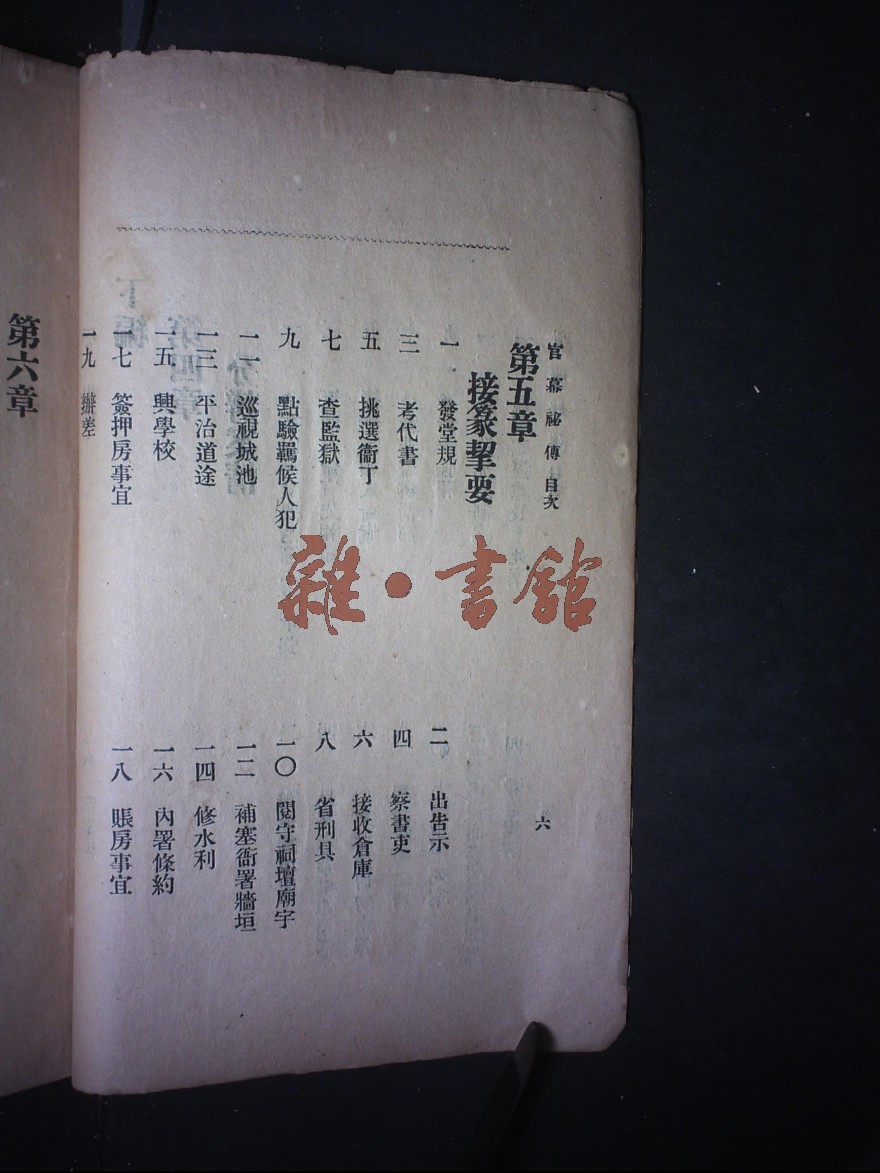 官幕祕傳 目次
六
第五章
接篆挈要
一 發堂規
二 出告示
三 考代書
四 察書吏
五 挑選衙丁
六 接收倉庫
七 查監獄
八 省刑具
九 點驗羈候人犯
一〇 閱守祠壇廟宇
一一 巡視城池
一二 補塞衙署牆垣
一三 平治道途
一四 修水利
一五 興學校
一六 內署條約
一七 簽押房事宜
一八 賬房事宜
一九 辦差
第六章
雜·書館